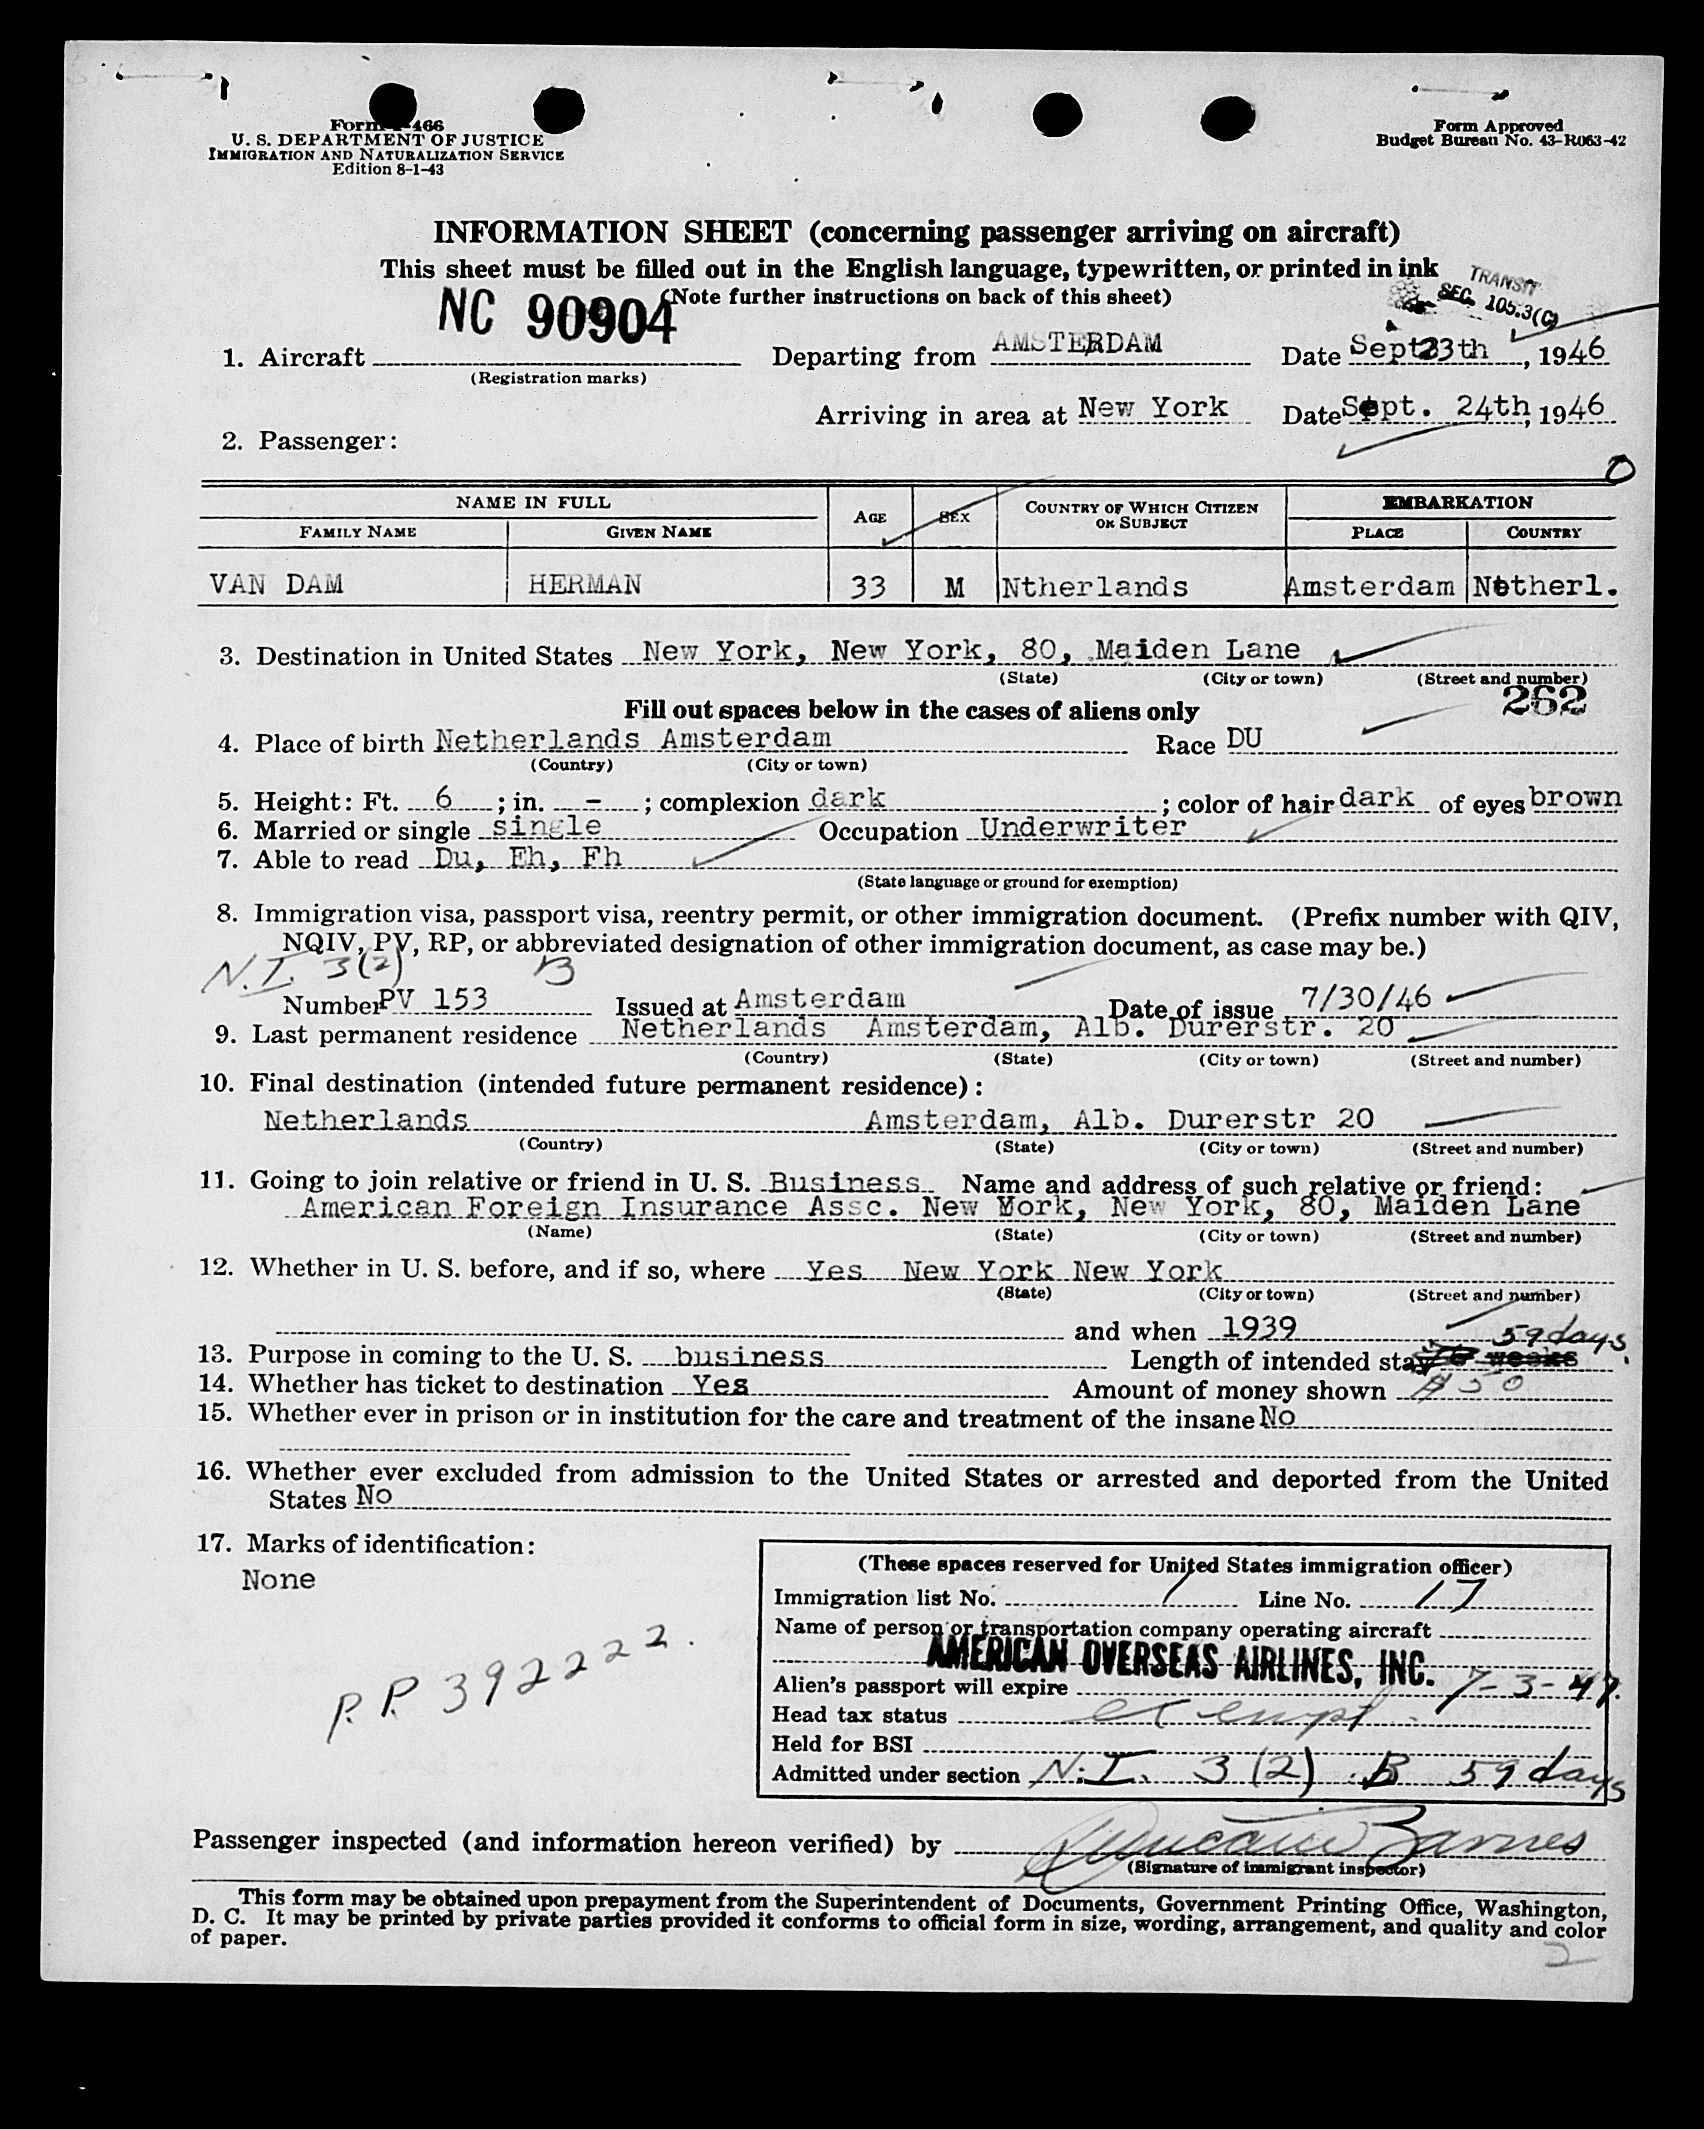 Form I-466
U. S. DEPARTMENT OF JUSTICE
IMMIGRATION AND NATURALIZATION SERVICE
Edition 8-1-43
Form Approved
Budget Bureau No. 43-R063-42
INFORMATION SHEET (concerning passenger arriving on aircraft)
This sheet must be filled out in the English language, typewritten, or printed in ink
(Note further instructions on back of this sheet)
TRANSIT
SEC. 105.3(C)
1. Aircraft NC 90904 Departing from AMSTERDAM Date Sept 23th, 1946
(Registration marks)
Arriving in area at New York Date Sept. 24th, 1946
2. Passenger:
0
NAME IN FULL AGE SEX COUNTRY OF WHICH CITIZEN OR SUBJECT EMBARKATION
FAMILY NAME GIVEN NAME PLACE COUNTRY
VAN DAM HERMAN 33 M Ntherlands Amsterdam Netherl.
3. Destination in United States New York, New York, 80, Maiden Lane
(State) (City or town) (Street and number)
262
Fill out spaces below in the cases of aliens only
4. Place of birth Netherlands Amsterdam Race DU
(Country) (City or town)
5. Height: Ft. 6 ; in. - ; complexion dark ; color of hair dark of eyes brown
6. Married or single single Occupation Underwriter
7. Able to read Du, Eh, Fh
(State language or ground for exemption)
8. Immigration visa, passport visa, reentry permit, or other immigration document. (Prefix number with QIV,
NQIV, PV, RP, or abbreviated designation of other immigration document, as case may be.)
N.I. 3(2) B
Number PV 153 Issued at Amsterdam Date of issue 7/30/46
9. Last permanent residence Netherlands Amsterdam, Alb. Durerstr. 20
(Country) (State) (City or town) (Street and number)
10. Final destination (intended future permanent residence):
Netherlands Amsterdam, Alb. Durerstr 20
(Country) (State) (City or town) (Street and number)
11. Going to join relative or friend in U. S. Business Name and address of such relative or friend:
American Foreign Insurance Assc. New York, New York, 80, Maiden Lane
(Name) (State) (City or town) (Street and number)
12. Whether in U. S. before, and if so, where Yes New York New York
(State) (City or town) (Street and number)
and when 1939
59 days.
13. Purpose in coming to the U. S. business Length of intended stay weeks
14. Whether has ticket to destination Yes Amount of money shown $50
15. Whether ever in prison or in institution for the care and treatment of the insane No
16. Whether ever excluded from admission to the United States or arrested and deported from the United
States No
17. Marks of identification:
None
P.P. 392222.
(These spaces reserved for United States immigration officer)
Immigration list No. 1 Line No. 17
Name of person or transportation company operating aircraft
AMERICAN OVERSEAS AIRLINES, INC.
Alien's passport will expire 7-3-47.
Head tax status exempt.
Held for BSI
Admitted under section N.I. 3(2) B 59 days
Passenger inspected (and information hereon verified) by Barnes
(Signature of immigrant inspector)
This form may be obtained upon prepayment from the Superintendent of Documents, Government Printing Office, Washington,
D. C. It may be printed by private parties provided it conforms to official form in size, wording, arrangement, and quality and color
of paper.
2